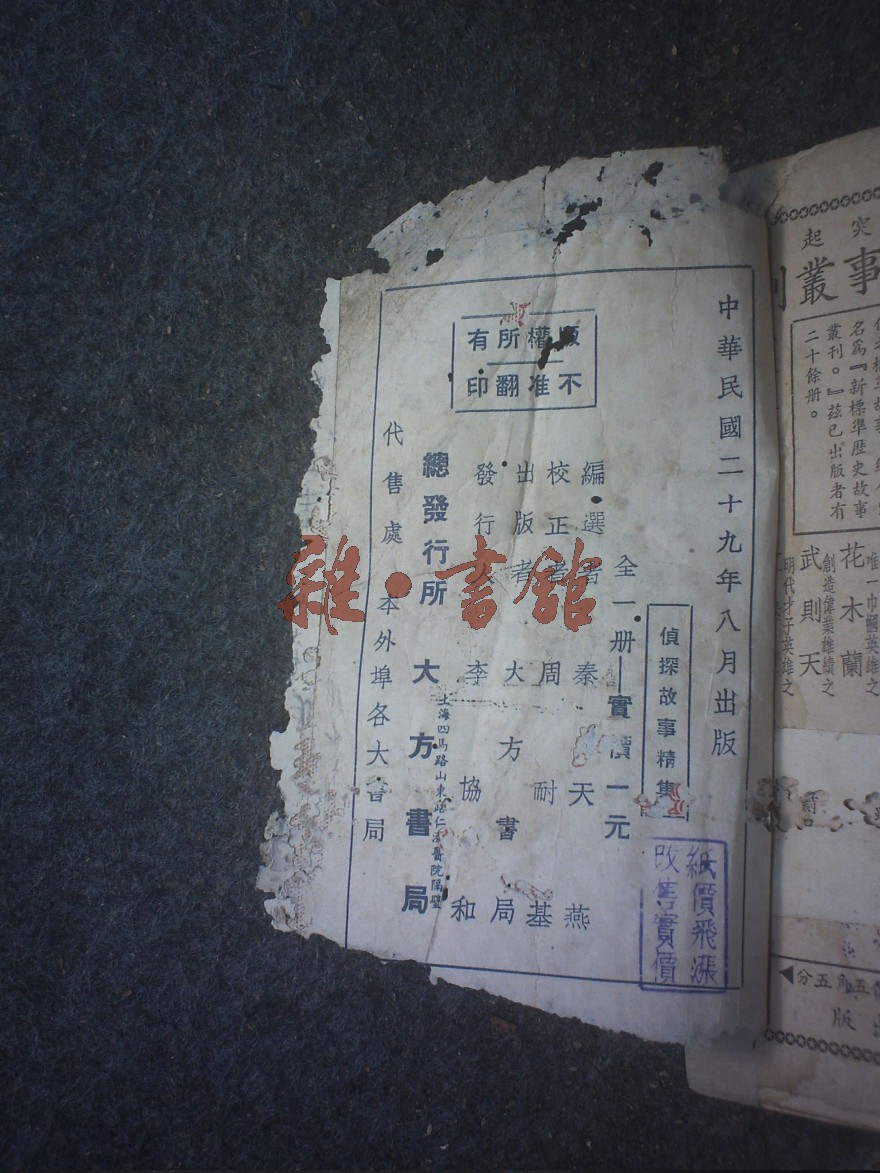 中華民國二十九年八月出版
偵探故事精集
全一册 實價一元
編選者 秦天燕
校正者 周耐基
出版者 大方書局
發行人 李協和
總發行所 大方書局
上海四馬路山東路仁濟醫院隔壁
代售處 本外埠各大書局
版權所有
不准翻印
紙價飛漲
改售實價
雜·書館
突起
事叢刊
名爲『新標準歷史故事
叢刊。』茲已出版者有
二十餘册。
花木蘭
唯一巾幗英雄之
武則天
創造偉業雄績之
明代才子英雄之
五角五分
版